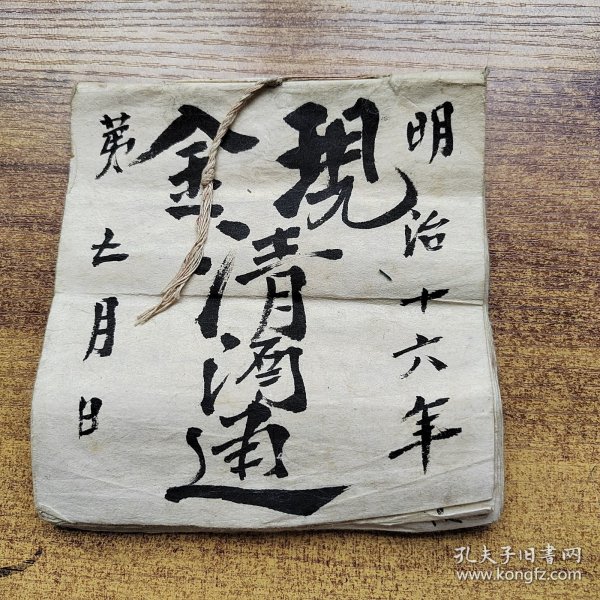 明治十六年
現金
清酒通
第七月日
孔夫子旧书网
www.kongfz.com